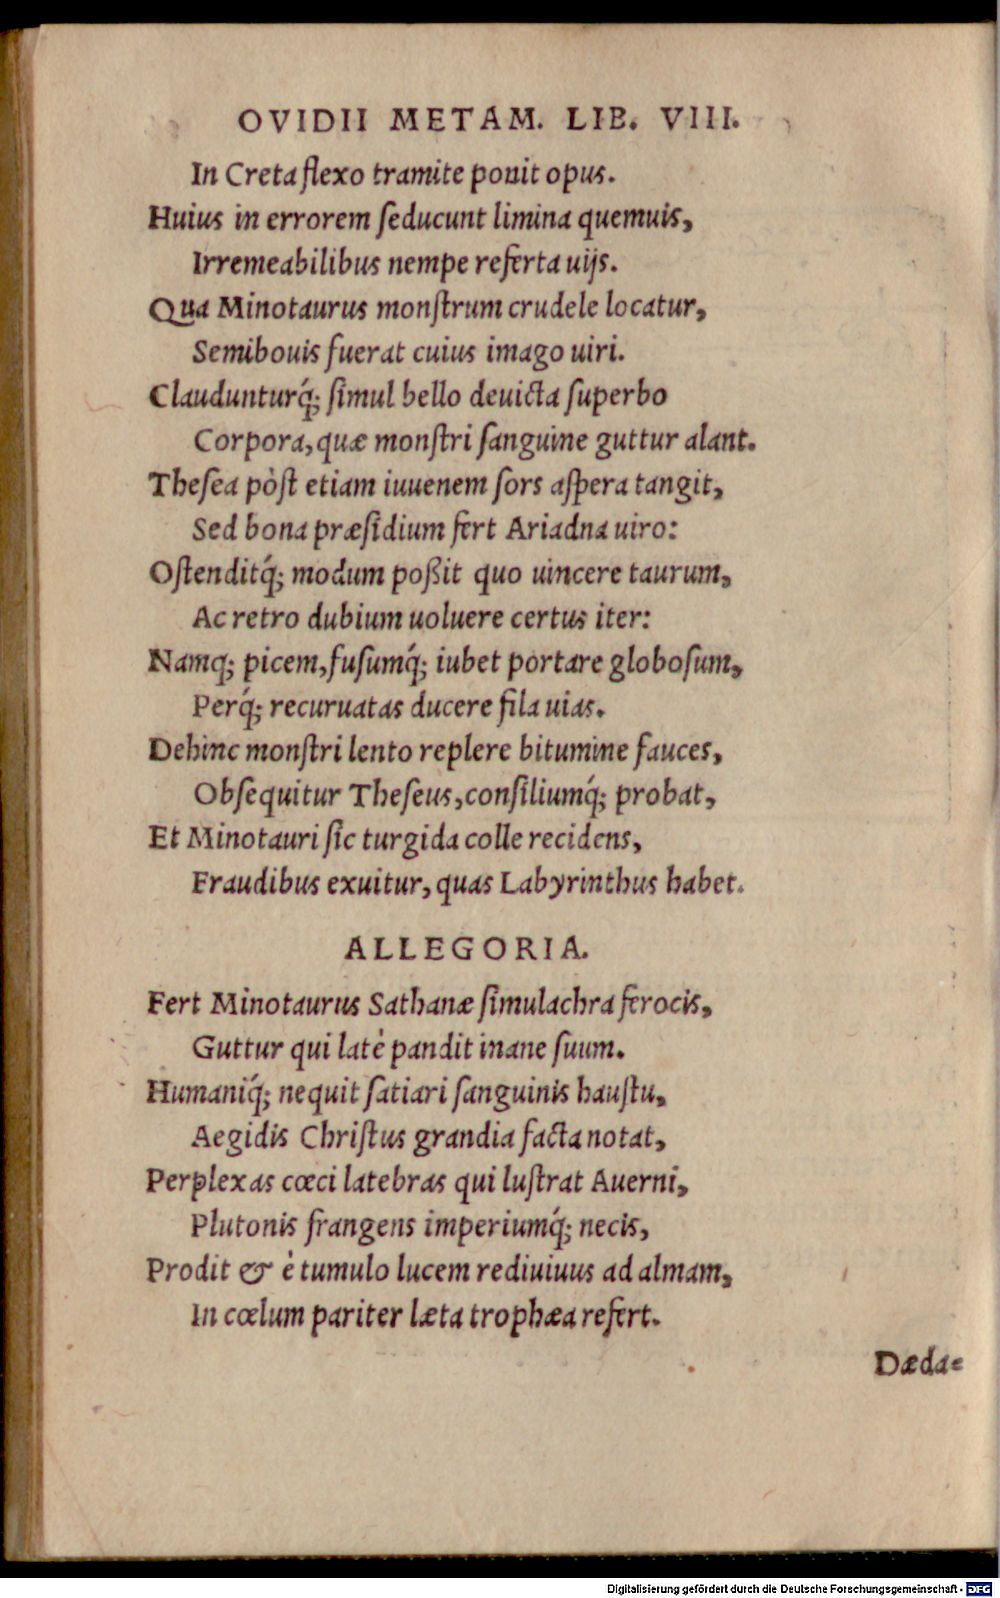 OVIDII METAM. LIB. VIII.
In Creta flexo tramite ponit opus.
Huius in errorem ſeducunt limina quemuis,
Irremeabilibus nempe referta uijs.
Qua Minotaurus monſtrum crudele locatur,
Semibouis fuerat cuius imago uiri.
Claudunturq́; ſimul bello deuicta ſuperbo
Corpora, quæ monſtri ſanguine guttur alant.
Theſea pòſt etiam iuuenem ſors aſpera tangit,
Sed bona præſidium fert Ariadna uiro:
Oſtenditq́; modum poßit quo uincere taurum,
Ac retro dubium uoluere certus iter:
Namq; picem, fuſumq́; iubet portare globoſum,
Perq́; recuruatas ducere fila uias.
Dehinc monſtri lento replere bitumine fauces,
Obſequitur Theſeus, conſiliumq́; probat,
Et Minotauri ſic turgida colle recidens,
Fraudibus exuitur, quas Labyrinthus habet.
ALLEGORIA.
Fert Minotaurus Sathanæ ſimulachra ferocis,
Guttur qui latè pandit inane ſuum.
Humaniq́; nequit ſatiari ſanguinis hauſtu,
Aegidis Chriſtus grandia facta notat,
Perplexas cœci latebras qui luſtrat Auerni,
Plutonis frangens imperiumq́; necis,
Prodit & è tumulo lucem rediuiuus ad almam,
In cœlum pariter læta trophæa refert.
Dæda-
Digitalisierung gefördert durch die Deutsche Forschungsgemeinschaft - DFG